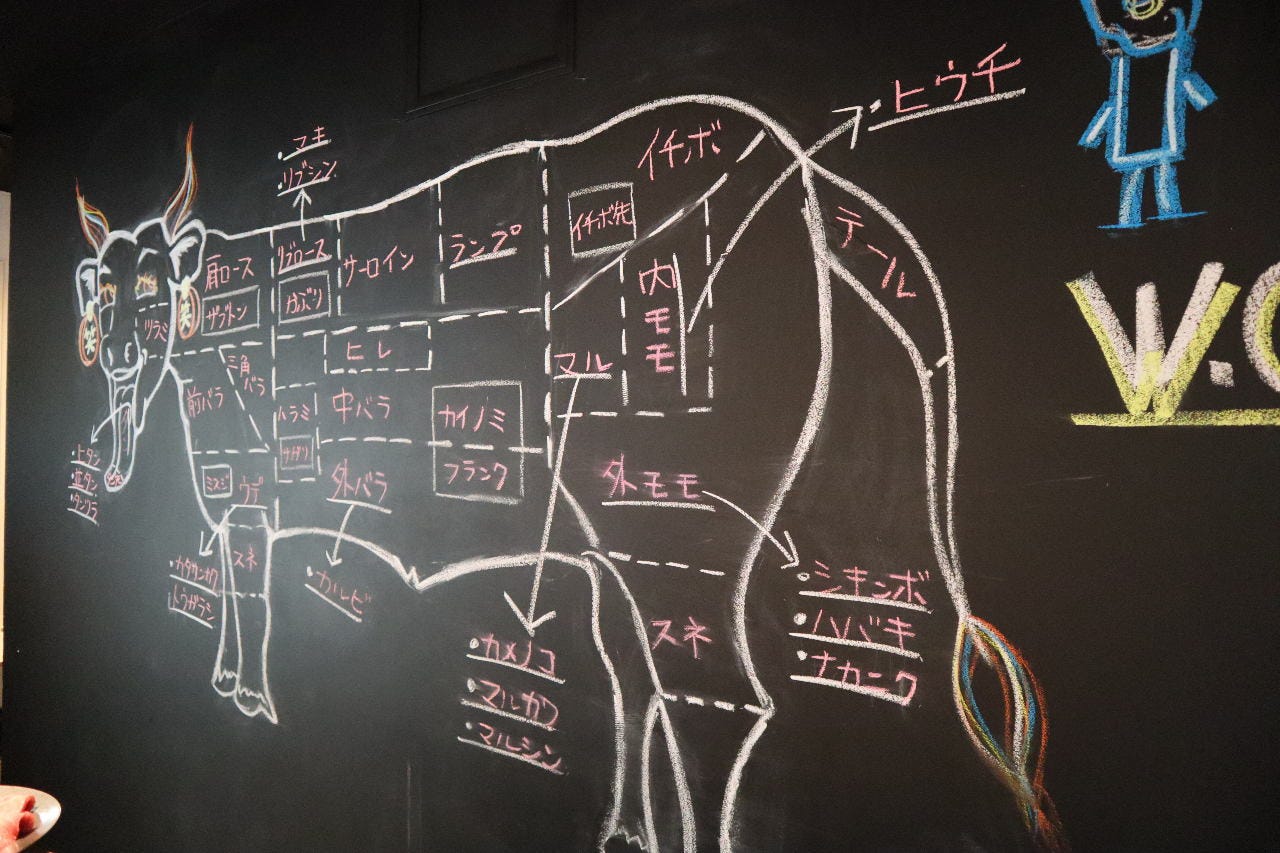 ・マキ
・リブシン
・ヒウチ
イチボ
イチボ先
テール
肩ロース
ザブトン
リブロース
かぶり
サーロイン
ランプ
内モモ
ツラミ
笑
笑
三角バラ
前バラ
ヒレ
マル
ハラミ
サガリ
中バラ
カイノミ
フランク
ミスジ
ウデ
外バラ
外モモ
・上タン
・並タン
・タンツラ
スネ
・カタサンカク
トウガラシ
・カルビ
・シキンボ
・ハバキ
・ナカニク
スネ
・カメノコ
・マルカワ
・マルシン
W.